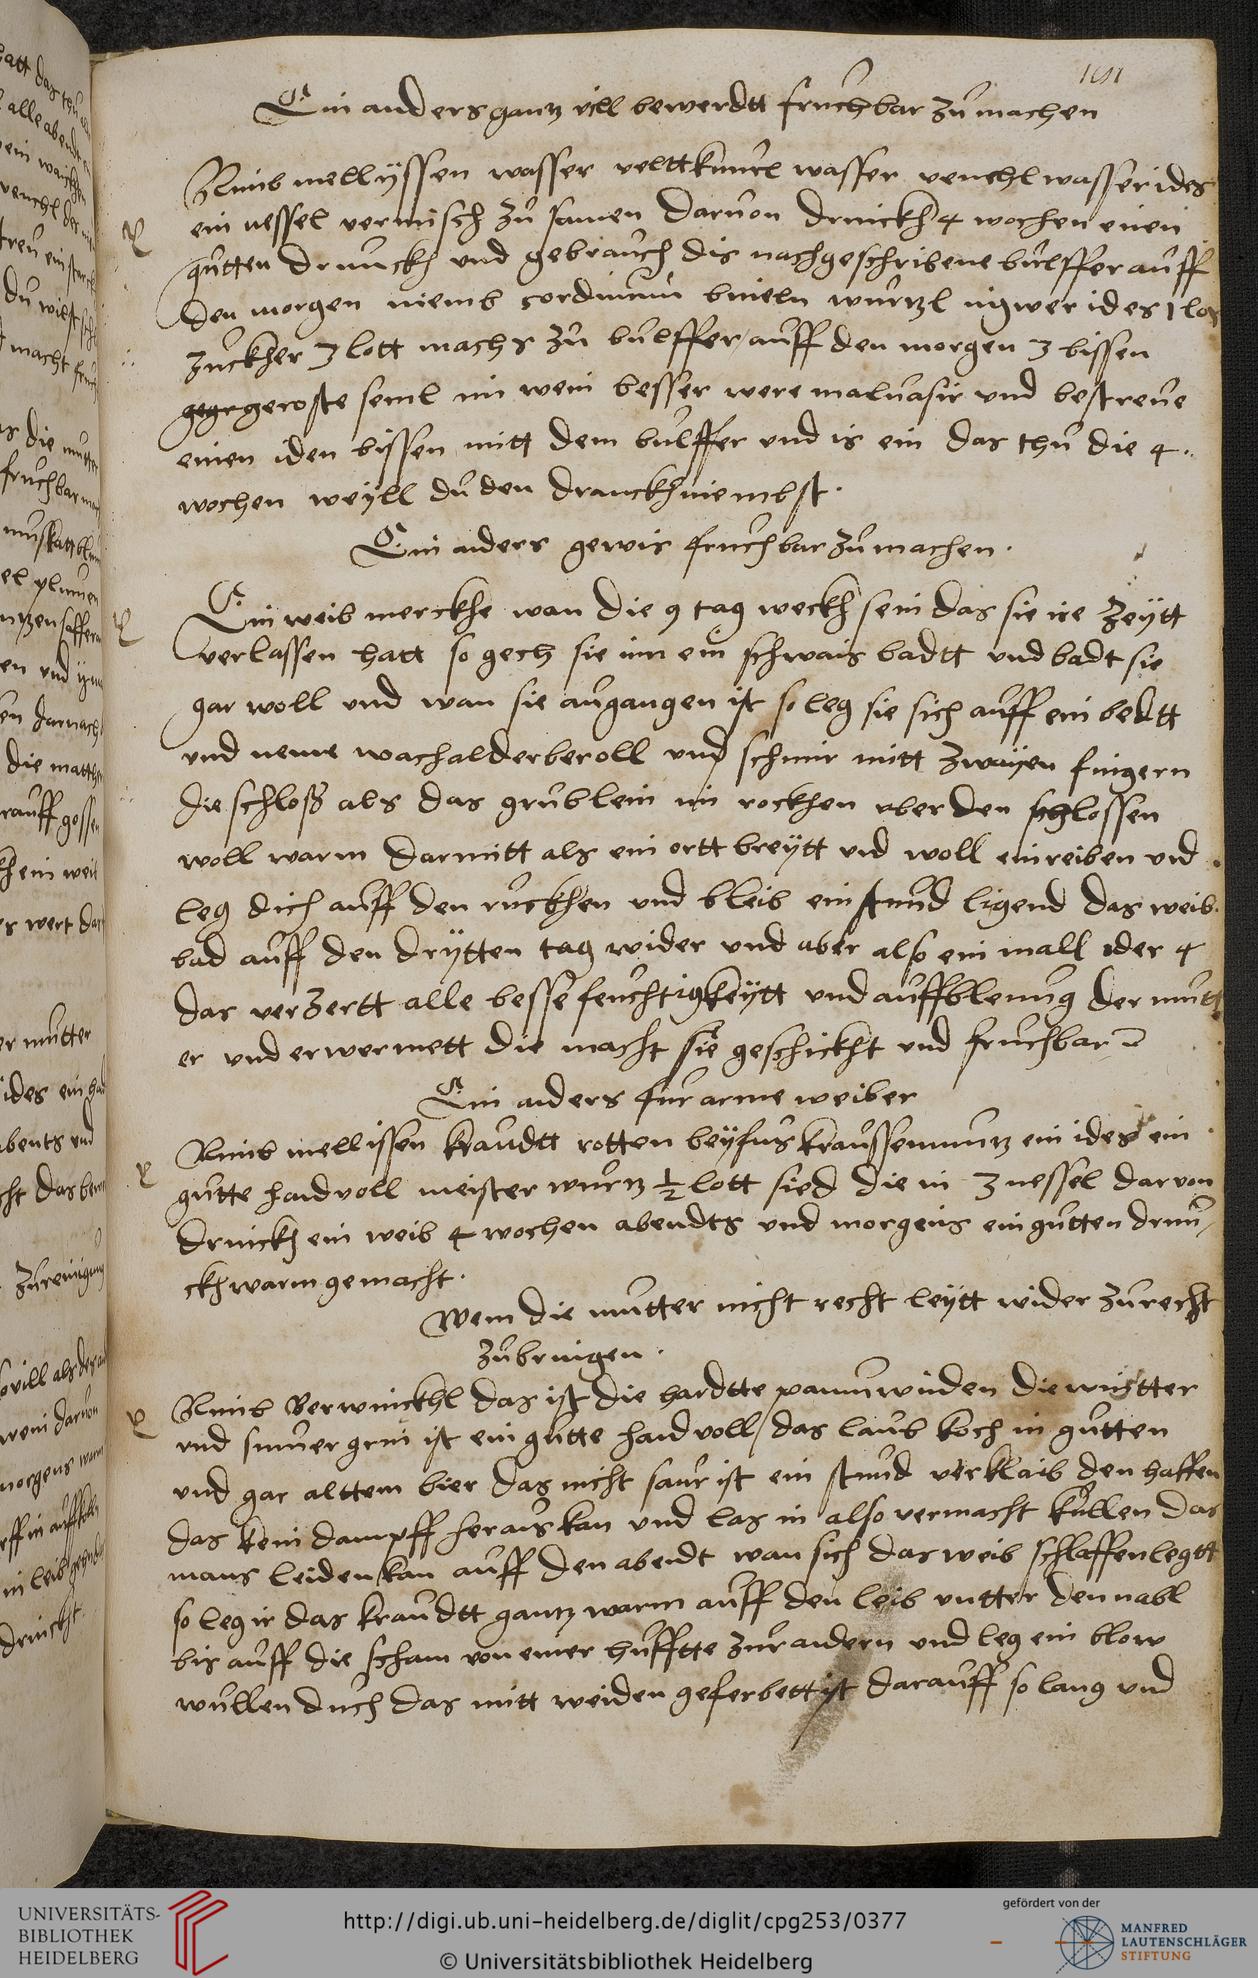 191
Ein anders gantz vill bewerdtt fruchbar zu machen
Nimb mellyssen wasser velttkimel wasser venchl wasser ides
ein nessel vermisch zu samen darvon drinckh 4 wochen einen
gutten drunckh und gebrauch dis nachgeschribene bulffer auff
den morgen niemb cordimum wurtzl ingwer ides 1 lot
zuckher 3 lott machs zu bulffer auff den morgen 3 bissen
geroste seml in wein besser were malvasir und bestreue
einen iden bissen mitt dem bulffer und is ein das thu die 4
wochen weyll du den dranckh niembst
Ein anders gewis fruchbar zu machen
Ein weib merckhe wan die 9 tag weckh sein das sie ire zeytt
verlassen hatt so gech sie inn ein schwais badtt und badt sie
gar woll und wan sie ausgangen ist so leg sie sich auff ein bedtt
und neme wachalderberoll und schmir mitt zwayen fingern
die schloß als das grublein im rockhen uber den schlossen
woll warm darmitt als ein ortt breytt und woll einreiben und
leg dich auff den ruckhen und bleib ein stund ligend das weib
bad auff den drytten tag wider und aber also ein mall ider 4
das verzertt alle besse feuchtigkeytt und auffblenung der mutt
er und erwermett die macht sie geschickht und fruchbar
Ein anders fur arme weiber
Nimb mellissen kraudtt rotten beyfus kraussenmuntz ein ides ein
gutte handvoll meisterwurtz ½ lott sied die in 3 nessel darvon
drinckh ein weib 4 wochen abendts und morgens ein gutten drun
ckh warm gemacht
Wem die mutter nicht recht leytt wider zu recht
zu bringen
Nimb Berwinckhl das ist die hardtte winden die wintter
und sumer grin ist ein gutte handvoll das laub koch in gutten
und gar alttem bier das nicht saur ist ein stund verklaib den haffen
das kein dampff heraus kan und las in also vermacht kullen das
mans leiden kan auff den abendt wan sich das weib schlaffen legtt
so leg ir das kraudtt gantz warm auff den leib untter den nabl
bis auff die scham von einer hufftte zur andern und leg ein blow
wullen duch das mitt weiden geferbett ist darauff so lang und
UNIVERSITÄTS-
BIBLIOTHEK
HEIDELBERG
http://digi.ub.uni-heidelberg.de/diglit/cpg253/0377
© Universitätsbibliothek Heidelberg
gefördert von der
MANFRED
LAUTENSCHLÄGER
STIFTUNG